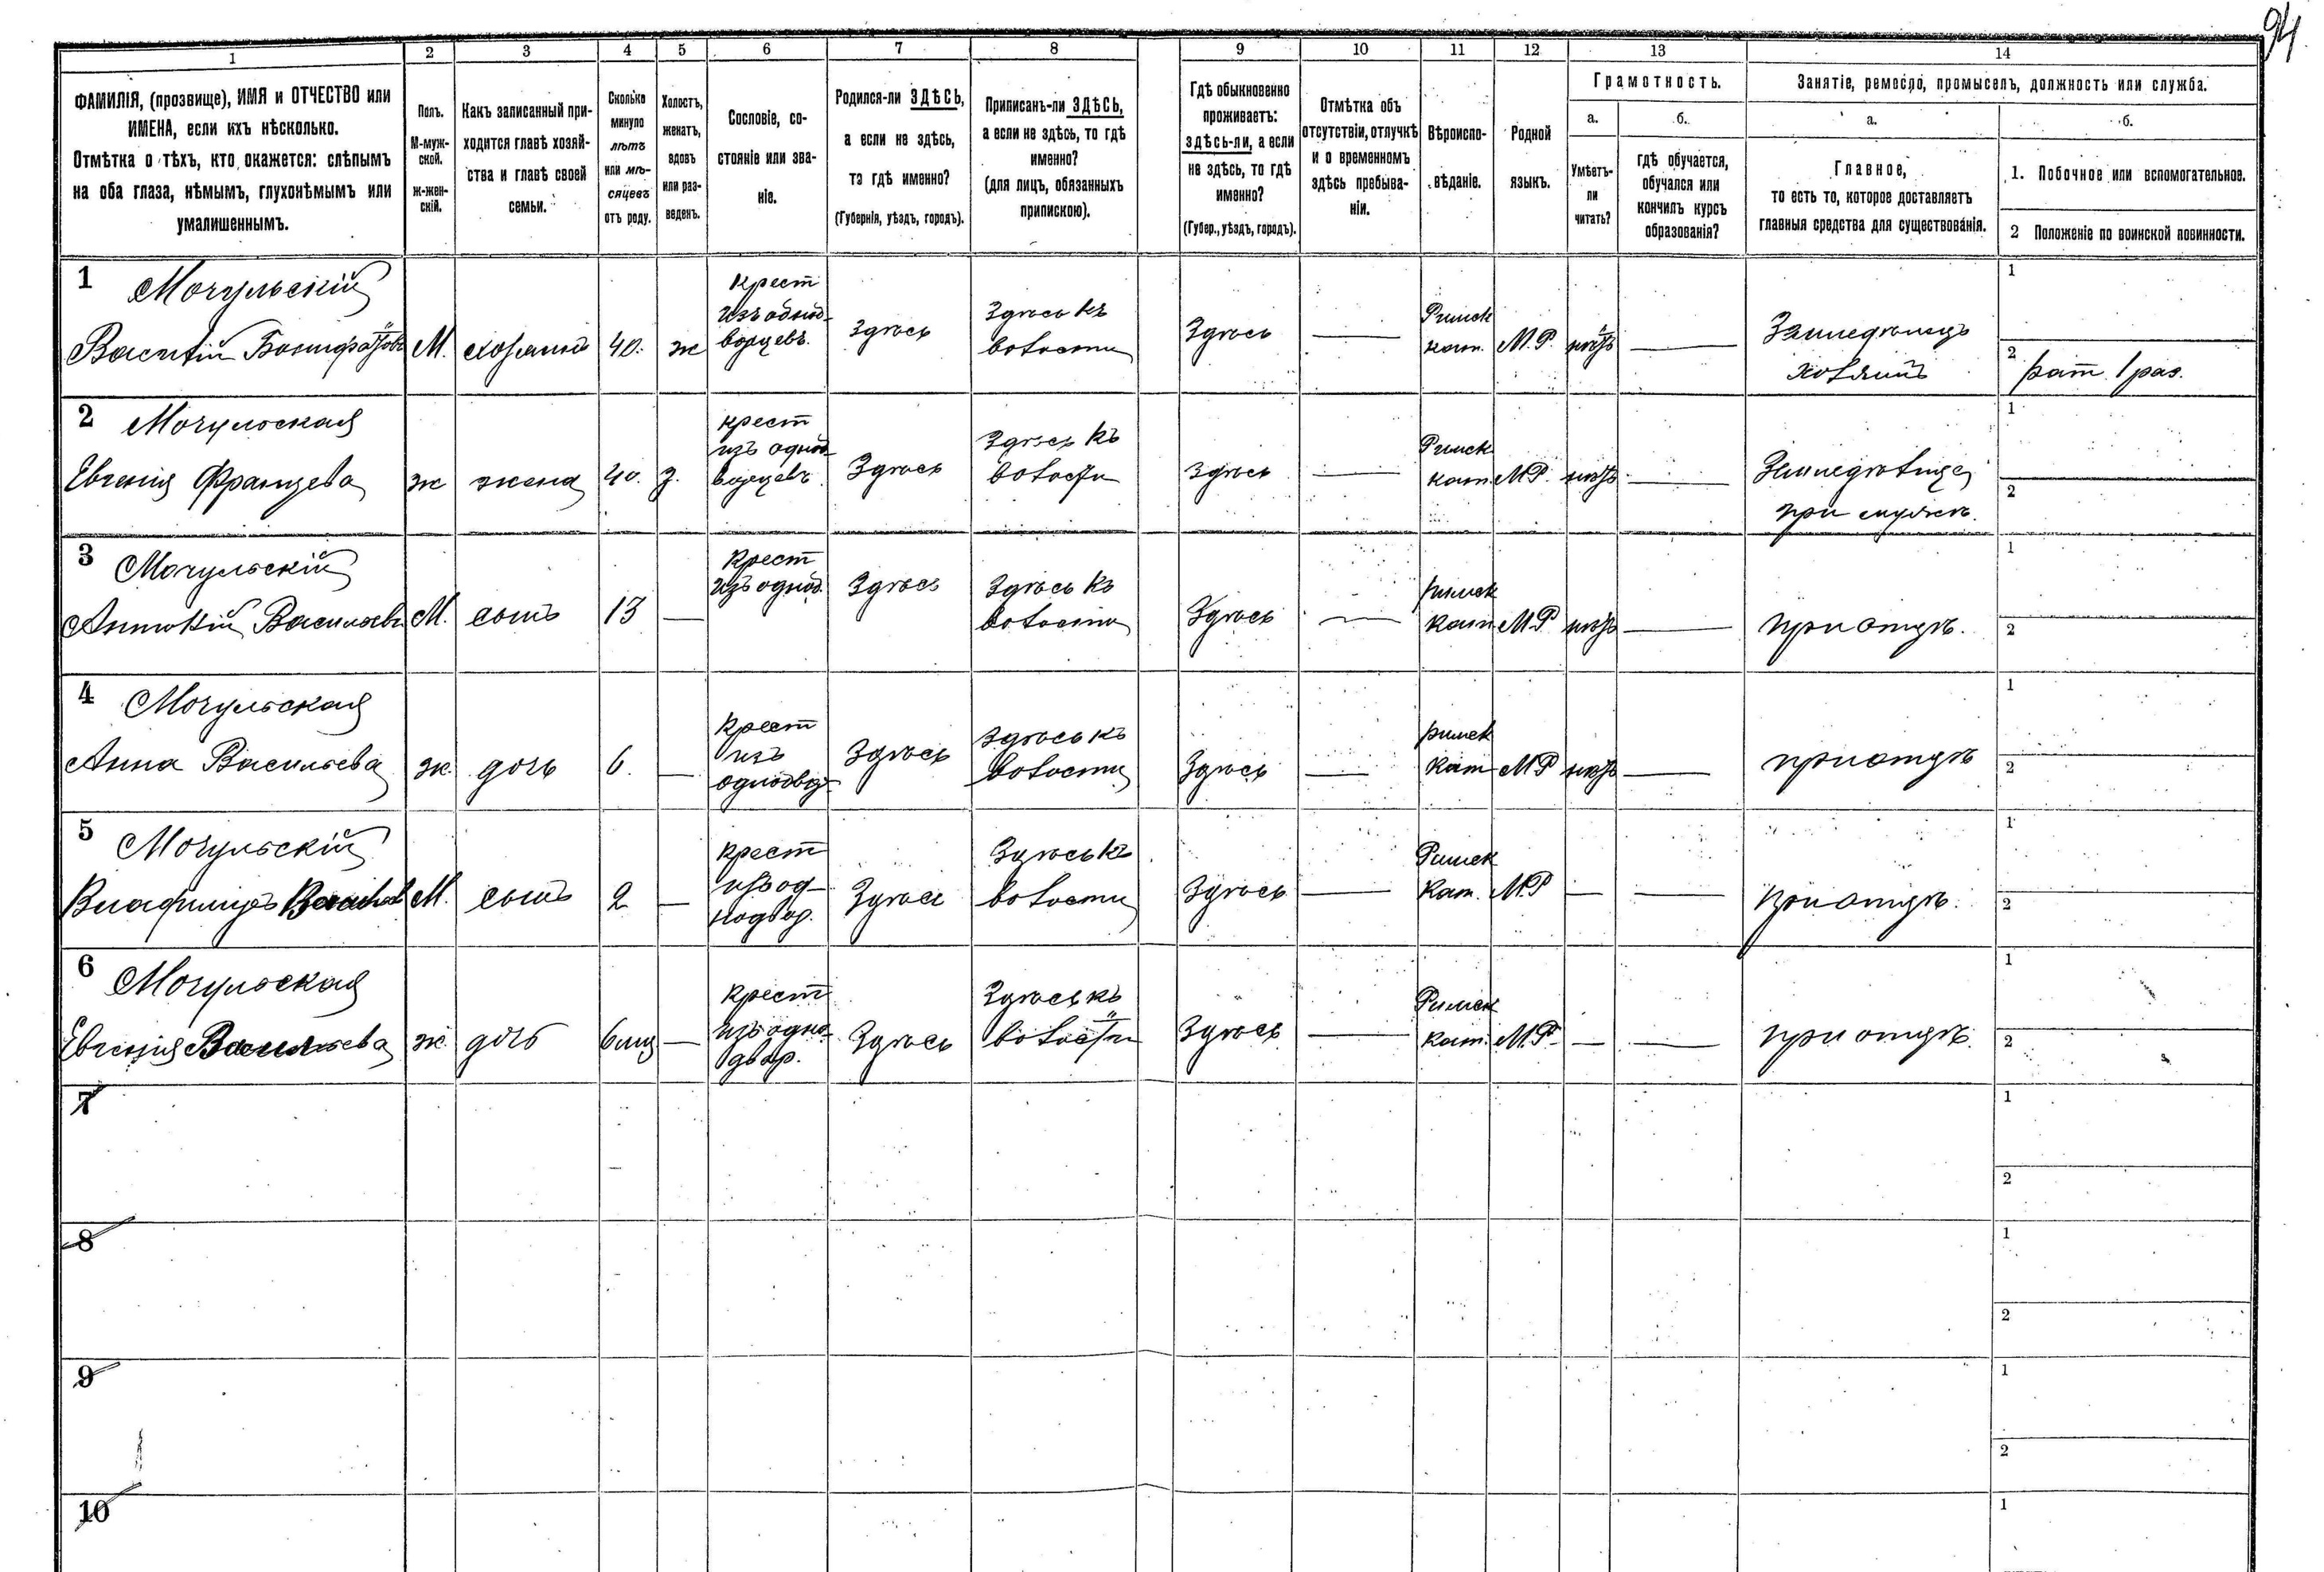 94
1 2 3 4 5 6 7 8 9 10 11 12 13 14
ФАМИЛІЯ, (прозвище), ИМЯ и ОТЧЕСТВО или
ИМЕНА, если ихъ нѣсколько.
Отмѣтка о тѣхъ, кто окажется: слѣпымъ
на оба глаза, нѣмымъ, глухонѣмымъ или
умалишеннымъ.
Полъ.
М-муж-
ской.
ж-жен-
скій.
Какъ записанный при-
ходится главѣ хозяй-
ства и главѣ своей
семьи.
Сколько
минуло
лѣтъ
или мѣ-
сяцевъ
отъ роду.
Холостъ,
женатъ,
вдовъ
или раз-
веденъ.
Сословіе, со-
стояніе или зва-
ніе.
Родился-ли ЗДѢСЬ,
а если не здѣсь,
то гдѣ именно?
(Губернія, уѣздъ, городъ).
Приписанъ-ли ЗДѢСЬ,
а если не здѣсь, то гдѣ
именно?
(для лицъ, обязанныхъ
припискою).
Гдѣ обыкновенно
проживаетъ:
здѣсь-ли, а если
не здѣсь, то гдѣ
именно?
(Губер., уѣздъ, городъ).
Отмѣтка объ
отсутствіи, отлучкѣ
и о временномъ
здѣсь пребыва-
ніи.
Вѣроиспо-
вѣданіе.
Родной
языкъ.
Грамотность.
а.
Умѣетъ-
ли
читать?
б.
гдѣ обучается,
обучался или
кончилъ курсъ
образованія?
Занятіе, ремесло, промыселъ, должность или служба.
а.
Главное,
то есть то, которое доставляетъ
главныя средства для существованія.
б.
1. Побочное или вспомогательное.
2 Положеніе по воинской повинности.
1
Мочульскій
Василій
М.
хозяинъ
40.
ж
Крест
изъ однод-
ворцевъ.
Здѣсь
Здѣсь къ
волости
Здѣсь
—
Римск
кат.
М.Р.
нѣтъ
—
Земледѣлецъ
хозяинъ
1
2
рат. 1 раз.
2
Мочульская
Евгенія Францева
ж
жена
40.
з.
крест
изъ однод-
ворцевъ
Здѣсь
Здѣсь къ
волости
здѣсь
—
Римск
кат.
М.Р.
нѣтъ
—
Земледѣлица
при мужѣ.
1
2
3
Мочульскій
Антоній Васильевъ
М.
сынъ
13
—
Крест
изъ однод.
Здѣсь
Здѣсь къ
волости
Здѣсь
—
римск
кат
М.Р
нѣтъ
—
при отцѣ.
1
2
4
Мочульская
Анна Васильева
ж.
дочь
6.
—
Крест
изъ
однодво
Здѣсь
здѣсь къ
волости
Здѣсь
—
римск
кат
М.Р
нѣтъ
—
при отцѣ
1
2
5
Мочульскій
Владиміръ
М.
сынъ
2
—
Крест
изъ од-
нодвор.
Здѣсь
Здѣсь къ
волости
Здѣсь
—
Римск
Кат.
М.Р
—
—
при отцѣ.
1
2
6
Мочульская
Евгенія Васильева
ж.
дочь
6 мц
—
Крест
изъ одно-
двор.
Здѣсь
Здѣсь къ
волости
Здѣсь
—
Римск
Кат.
М.Р.
—
—
при отцѣ.
1
2
7
1
2
8
1
2
9
1
2
10
1